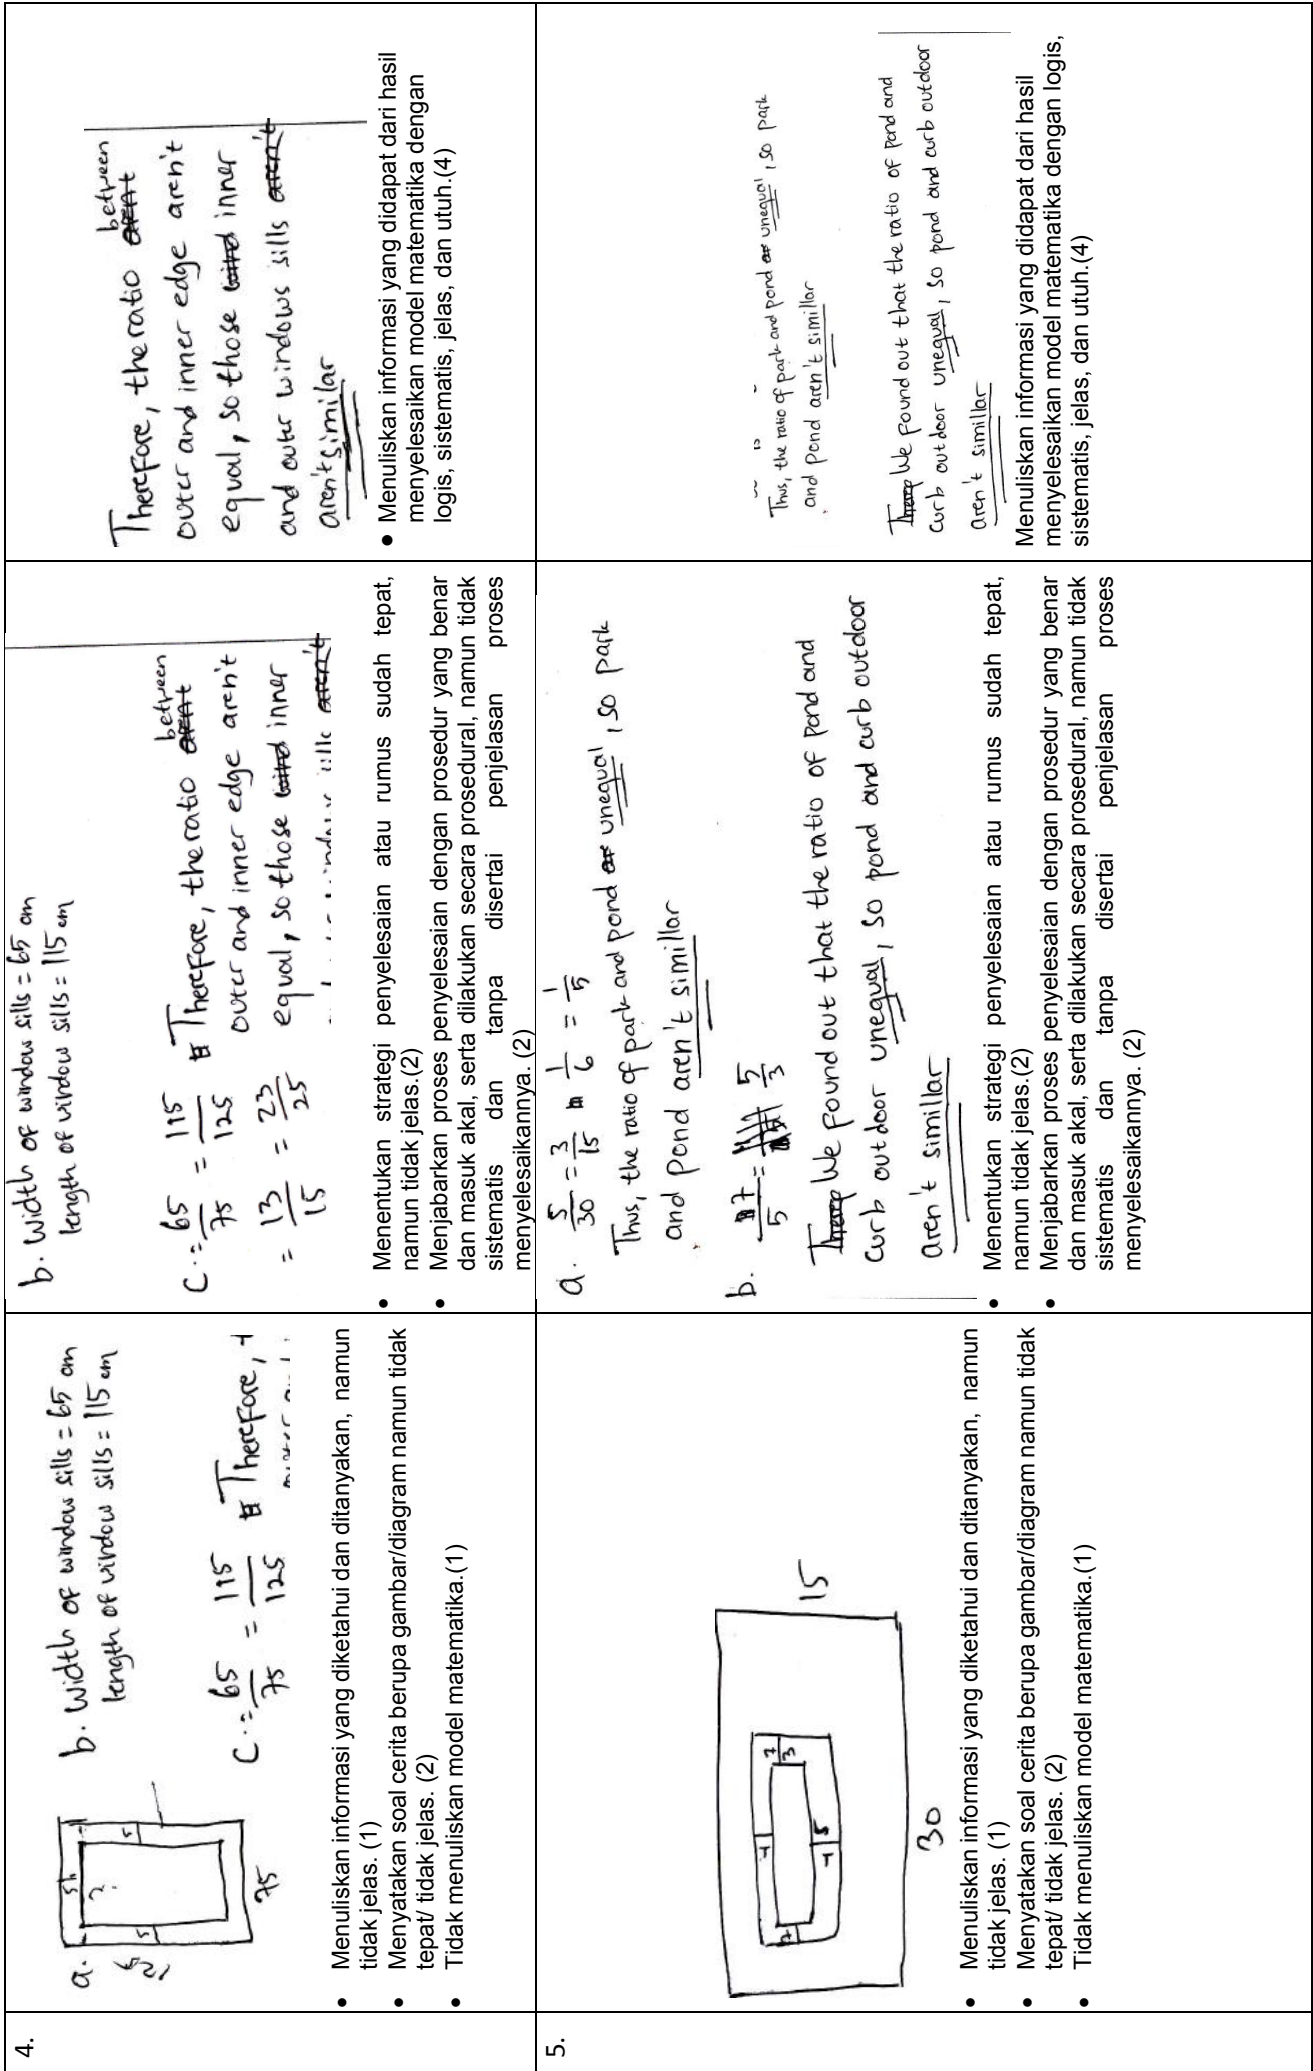 4.
a.
5
?
5
5
125
75
b. Width of window sills = 65 cm
length of window sills = 115 cm
C. = 65/75 = 115/125
Therefore, t
• Menuliskan informasi yang diketahui dan ditanyakan, namun
tidak jelas. (1)
• Menyatakan soal cerita berupa gambar/diagram namun tidak
tepat/ tidak jelas. (2)
• Tidak menuliskan model matematika.(1)
b. Width of window sills = 65 cm
length of window sills = 115 cm
C. = 65/75 = 115/125
= 13/15 = 23/25
Therefore, the ratio between
outer and inner edge aren't
equal, so those inner
• Menentukan strategi penyelesaian atau rumus sudah tepat,
namun tidak jelas.(2)
• Menjabarkan proses penyelesaian dengan prosedur yang benar
dan masuk akal, serta dilakukan secara prosedural, namun tidak
sistematis dan tanpa disertai penjelasan proses
menyelesaikannya. (2)
Therefore, the ratio between
outer and inner edge aren't
equal, so those inner
and outer windows sills aren't
aren't similar
• Menuliskan informasi yang didapat dari hasil
menyelesaikan model matematika dengan
logis, sistematis, jelas, dan utuh.(4)
5.
7
3
1
5
1
15
30
• Menuliskan informasi yang diketahui dan ditanyakan, namun
tidak jelas. (1)
• Menyatakan soal cerita berupa gambar/diagram namun tidak
tepat/ tidak jelas. (2)
• Tidak menuliskan model matematika.(1)
a. 5/30 = 3/15 1/6 = 1/5
Thus, the ratio of park and pond unequal, so park
and Pond aren't simillar
b. 7/5 = 5/3
We found out that the ratio of Pond and
curb outdoor unequal, so pond and curb outdoor
aren't simillar
• Menentukan strategi penyelesaian atau rumus sudah tepat,
namun tidak jelas.(2)
• Menjabarkan proses penyelesaian dengan prosedur yang benar
dan masuk akal, serta dilakukan secara prosedural, namun tidak
sistematis dan tanpa disertai penjelasan proses
menyelesaikannya. (2)
Thus, the ratio of park and pond unequal, so park
and Pond aren't simillar
We found out that the ratio of Pond and
curb outdoor unequal, so pond and curb outdoor
aren't simillar
Menuliskan informasi yang didapat dari hasil
menyelesaikan model matematika dengan logis,
sistematis, jelas, dan utuh.(4)